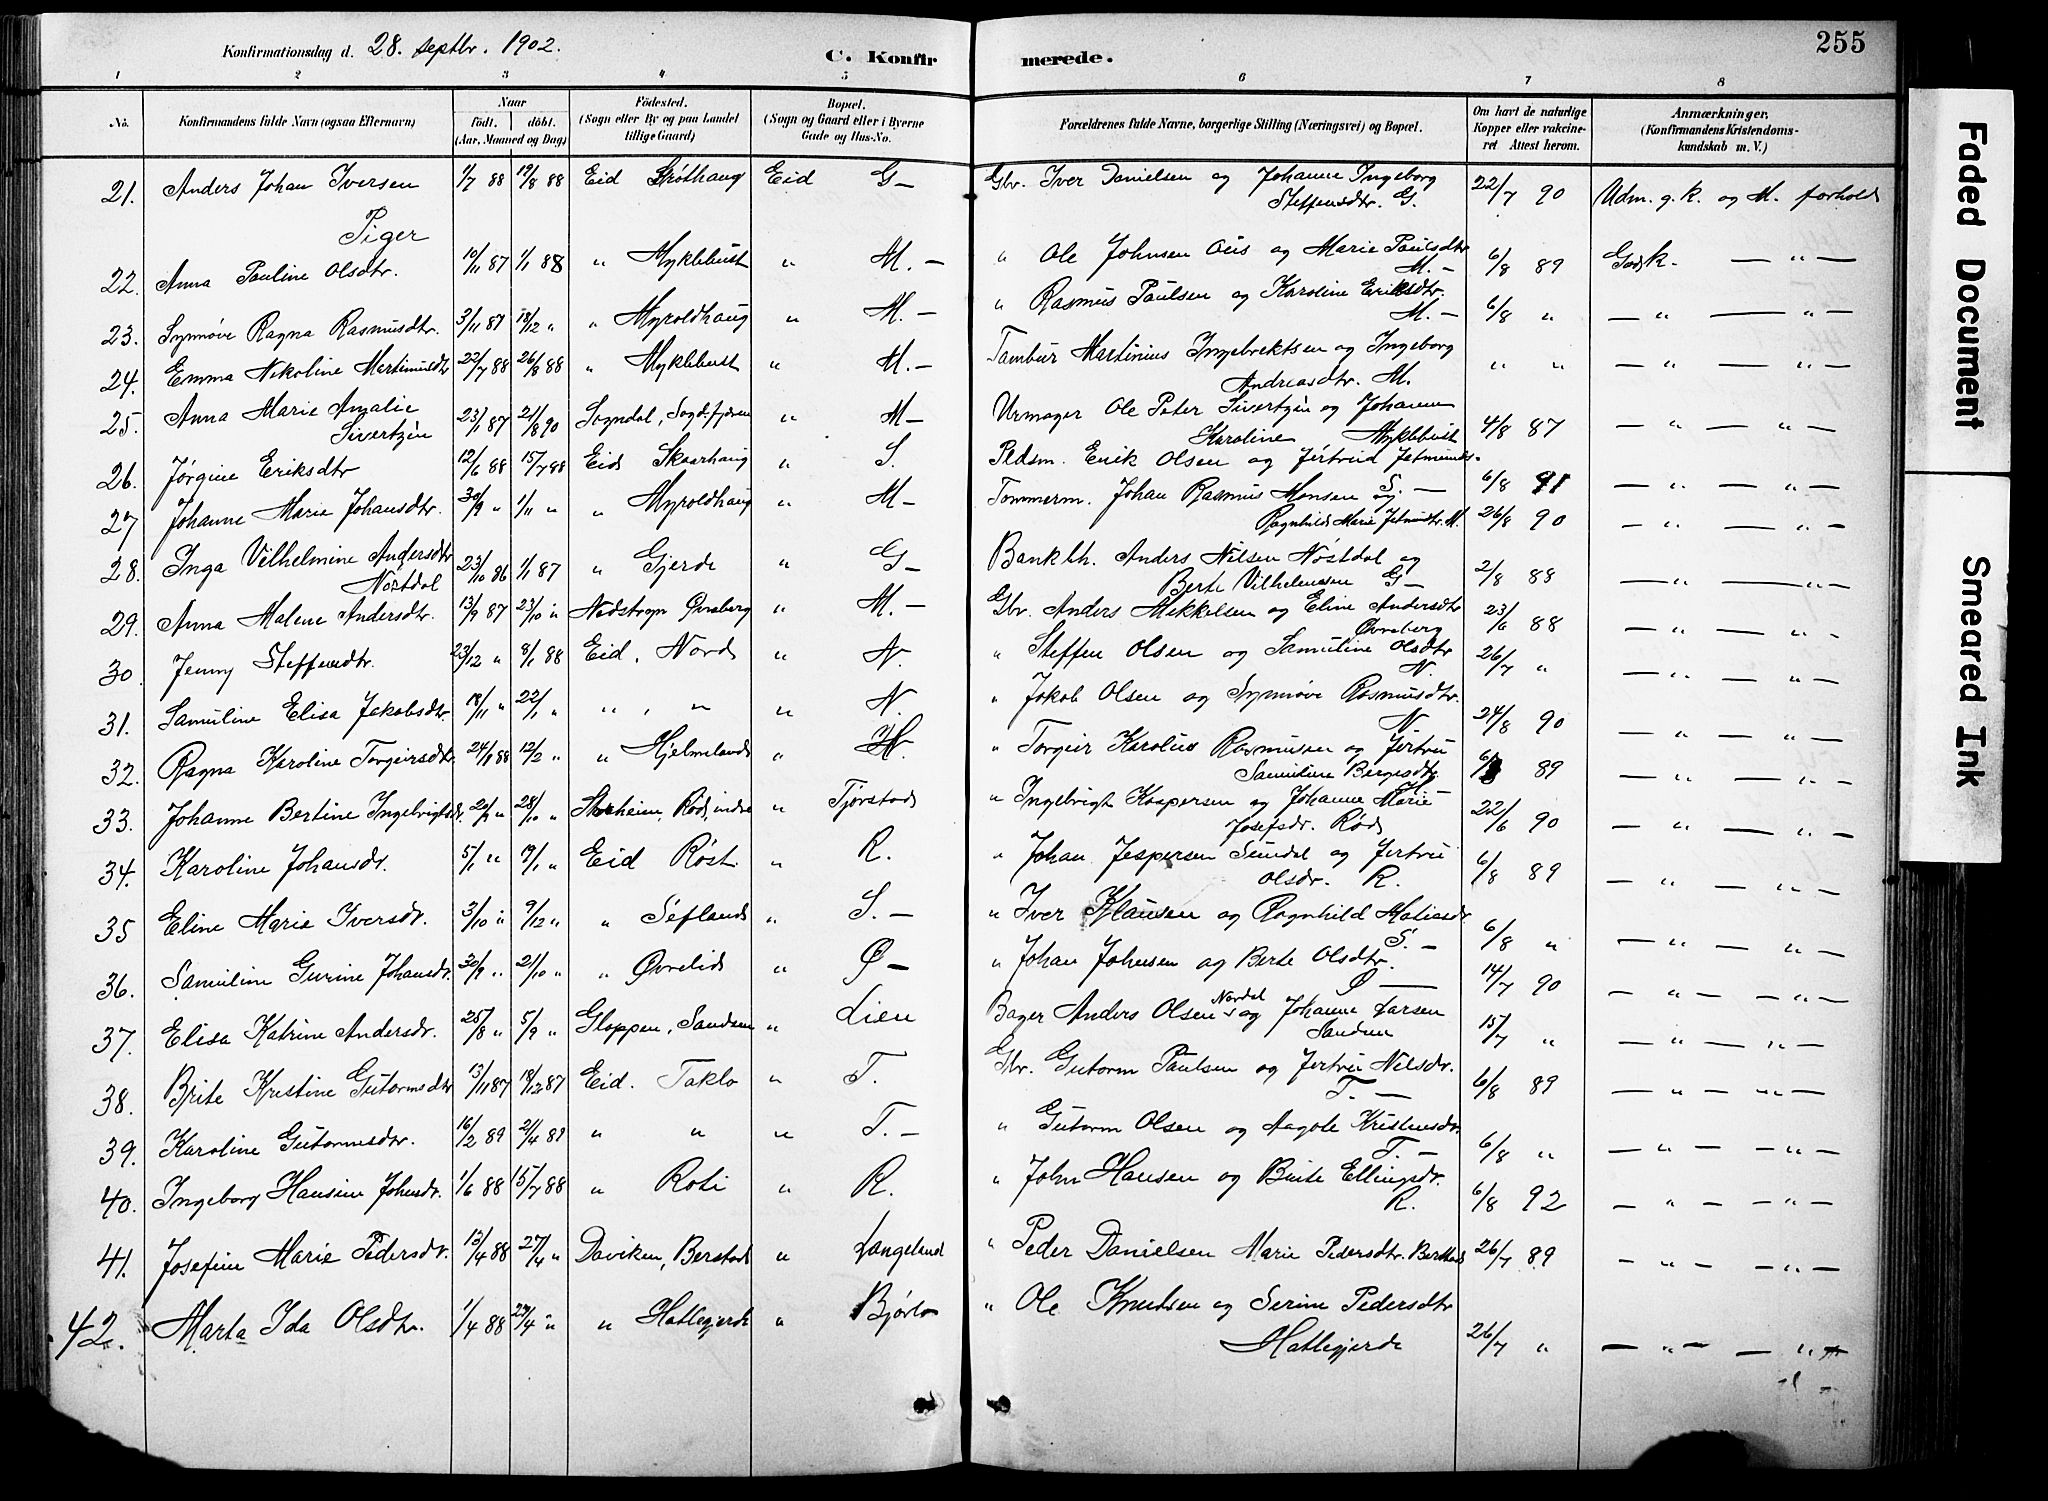 Konfirmationsdag d. 28. septbr. 1902.
C. Konfirmerede.
255
1 2 3 4 5 6 7 8
No.
Konfirmandens fulde Navn (ogsaa Efternavn)
Naar
født. døbt.
(Aar, Maaned og Dag)
Fødested.
(Sogn eller By og paa Landet
tillige Gaard)
Bopæl.
(Sogn og Gaard eller i Byerne
Gade og Hus-No.
Forældrenes fulde Navne, borgerlige Stilling (Næringsvei) og Bopæl.
Om havt de naturlige
Kopper eller vakcine-
ret Attest herom.
Anmærkninger.
(Konfirmandens Kristendoms-
kundskab m. V.)
21. Anders Johan Iversen 1/7 88 19/8 88 Eid Grøthaug Eid G— Gbr. Iver Danielsen og Johanne Ingeborg
Steffensdtr. G. 22/7 90 Udm. g. k. og M. forhold
Piger
22. Anna Pauline Olsdtr. 10/11 87 1/1 88 " Myklebust " M.— " Ole Johnsen Ous og Marie Paulsdtr
M.— 6/8 89 God k. — " —
23. Synnøve Ragna Rasmusdtr. 3/11 87 18/12 " " Myroldhaug " M.— " Rasmus Paulsen og Karoline Eriksdtr.
M.— 6/8 " — " — " —
24. Emma Nikoline Martinusdtr 22/7 88 26/8 88 " Myklebust " M.— Tambur Martinius Ingebrektsen og Ingeborg
Andreasdtr. M. " " — " — " —
25. Anna Marie Amalie
Sivertzen 23/1 87 21/8 90 Sogndal, Sogdfjæren " M— Urmager Ole Peter Sivertzen og Johanne
Karoline Myklebust 4/8 87 — " — " —
26. Jørgine Eriksdtr 12/6 88 15/7 88 Eid Skaarhaug " S. Pldsm. Erik Olsen og Jertrud Jetmunds-
S.— 6/8 91 — " — " —
27 Johanne Marie Johansdtr. 30/9 " 1/11 " " Myroldhaug " M— Tømmerm. Johan Rasmus Monsen og
Ragnhild Marie Jetmundtr. M. 26/8 90 — " — " —
28. Inga Vilhelmine Andersdtr
Nøstdal 23/10 86 1/1 87 " Gjerde " G— Bankbh. Anders Nilsen Nøstdal og
Berte Vilhelmsen G— 2/8 88 — " — " —
29. Anna Malene Andersdtr. 13/9 87 23/10 " Nedstryn Øvreberg " M.— Gbr. Anders Mikkelsen og Eline Andersdtr
Øvreberg 23/6 88 — " — " —
30. Jenny Steffensdtr. 23/12 " 8/1 88 Eid. Nord " N. " Steffen Olsen og Samuline Olsdtr
N. 26/7 " — " — " —
31. Samuline Elisa Jakobsdtr. 19/11 " 22/1 " " " " N. " Jakob Olsen og Synnøve Rasmusdtr.
N 24/8 90 — " — " —
32. Ragna Karoline Torgeirsdtr. 24/1 88 12/2 " " Hjelmeland " H. " Torgeir Karolius Rasmusen og Jertru
Samuline Bergesdtr H— 6/8 89 — " — " —
33. Johanne Bertine Ingebrigtsdr. 20/9 " 28/10 " Starheim, Rød, indre " Tjørstad " Ingebrigt Kaspersen og Johanne Marie
Josefsdr. Rød 22/6 90 — " — " —
34. Karoline Johansdr. 5/1 " 19/1 " Eid Røst " R. " Johan Jespersen Sundal og Jertru
Olsdr. R. 6/8 89 — " — " —
35 Eline Marie Iversdr. 3/10 " 9/12 " " Sefland " S.— " Iver Klausen og Ragnhild Matiasdr.
S.— 6/8 " — " — " —
36. Samuline Gurine Johansdr. 30/9 " 21/10 " " Øvrelid " Ø— " Johan Johnsen og Berte Olsdtr.
Ø— 14/7 90 — " — " —
37. Elisa Katrine Andersdr. 25/8 " 5/9 " Gloppen, Sandum " Lien Bager Anders Olsen Nordal og Johanne Larsen
Sandum 15/7 " — " — " —
38. Brite Kristine Gutormsdtr 13/11 87 18/12 87 Eid. Taklo " T. Gbr. Gutorm Paulsen og Jertru Nilsdr.
T.— 6/8 89 — " — " —
39. Karoline Gutormsdr. 16/2 89 21/4 89 " " " T.— " Gutorm Olsen og Aagote Kristensdr.
T.— 6/8 " — " — " —
40. Ingeborg Hansine Johnsdr. 1/6 88 15/7 88 " Roti " R. " John Hansen og Brite Ellingsdr.
R. 6/8 92 — " — " —
41. Josefine Marie Pedersdr. 13/4 88 27/4 " Daviken, Berstad " Langeland " Peder Danielsen Marie Pedersdtr. Berstad 26/7 89 — " — " —
42. Marta Ida Olsdtr. 1/4 88 29/4 " " Hatlegjerde " Bjørlo " Ole Knudsen og Serine Pedersdtr
Hatlegjerde 26/7 " — " — " —
Faded Document
Smeared Ink